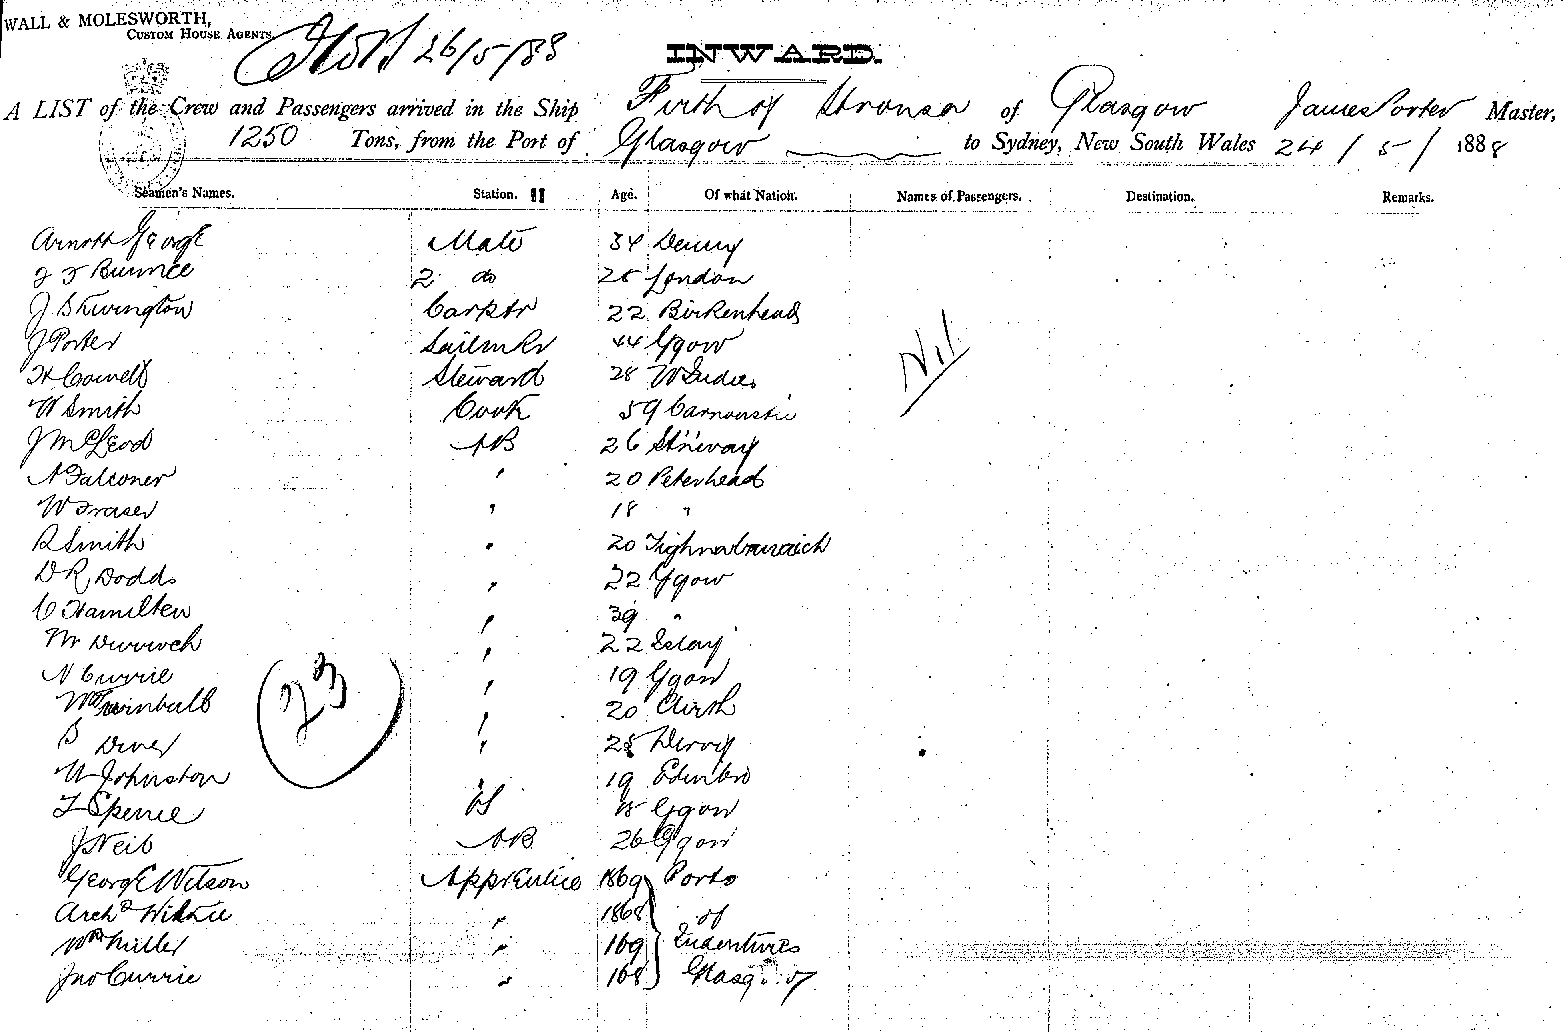 WALL & MOLESWORTH,
CUSTOM HOUSE AGENTS.
26/5/88
INWARD.
A LIST of the Crew and Passengers arrived in the Ship Firth of Stronsa of Glasgow James Porter Master,
1250 Tons, from the Port of Glasgow to Sydney, New South Wales 24 / 5 / 1888
Seamen's Names. Station. Age. Of what Nation. Names of Passengers. Destination. Remarks.
Arnott George Mate 34 Denny
2 do 25 London
J Skivington Carptr 22 Birkenhead
J Porter Sailmkr 44 Ggow
H Cowell Steward 28 W Indies
W Smith Cook 59 Carnoustie
J McLeod AB 26 St'n'way
A Falconer " 20 Peterhead
W Fraser " 18 "
R Smith " 20 Tighnabruaich
D R Dodds " 22 Ggow
C Hamilton " 39 "
" 22 Islay
N Currie " 19 Ggow
Wm Turnbull " 20
" Derry
Johnston " 19 Edinbro
Spence OS Ggow
J Neil AB 26 Ggow
George Wilson Apprentice 1869 Ports
Archd Wilkie " 1868 of
Wm Miller " 169 Indentures
Jno Currie " 168
Nil
23